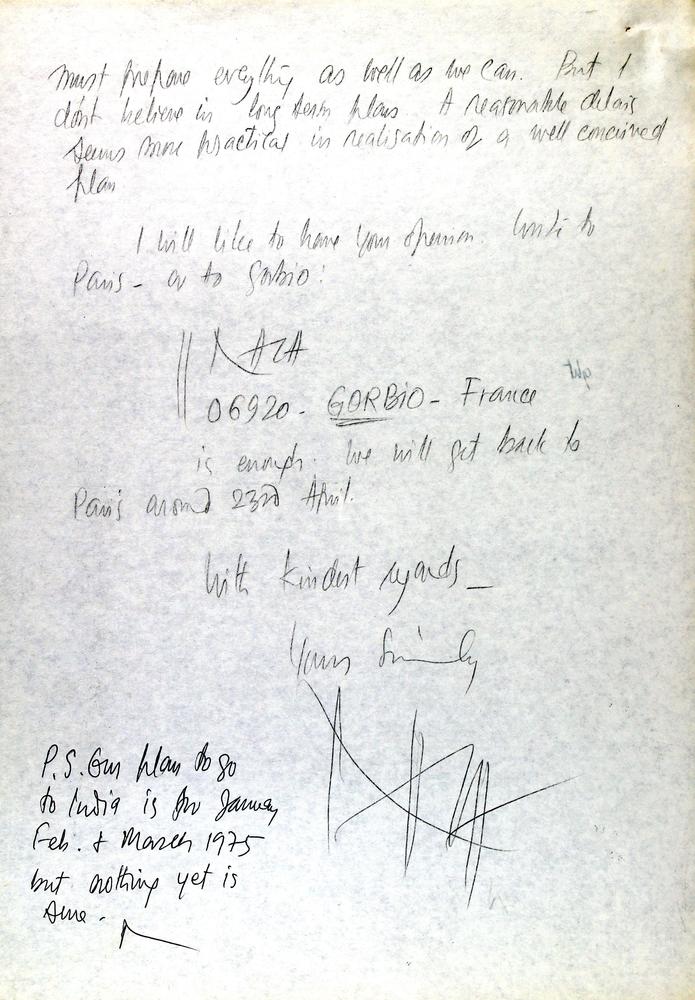 must prepare everything as well as we can. But I
don't believe in long term plans. A reasonable delais
seems more practical in realisation of a well conceived
plan
I will like to have your openion. Write to
Paris - or to Gorbio:
RAZA
06920 - GORBIO - France
is enough. We will get back to
Paris around 23rd April.
With kindest regards _
Yours Sincerely
P.S. Our plan to go
to India is for January
Feb. & March 1975
but nothing yet is
sure -